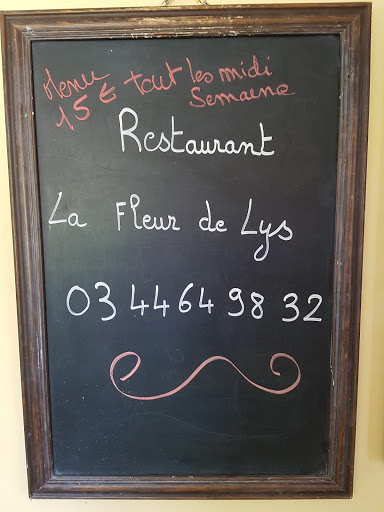 Menu tout les midi
15 € Semaine
Restaurant
La Fleur de Lys
03 44 64 98 32